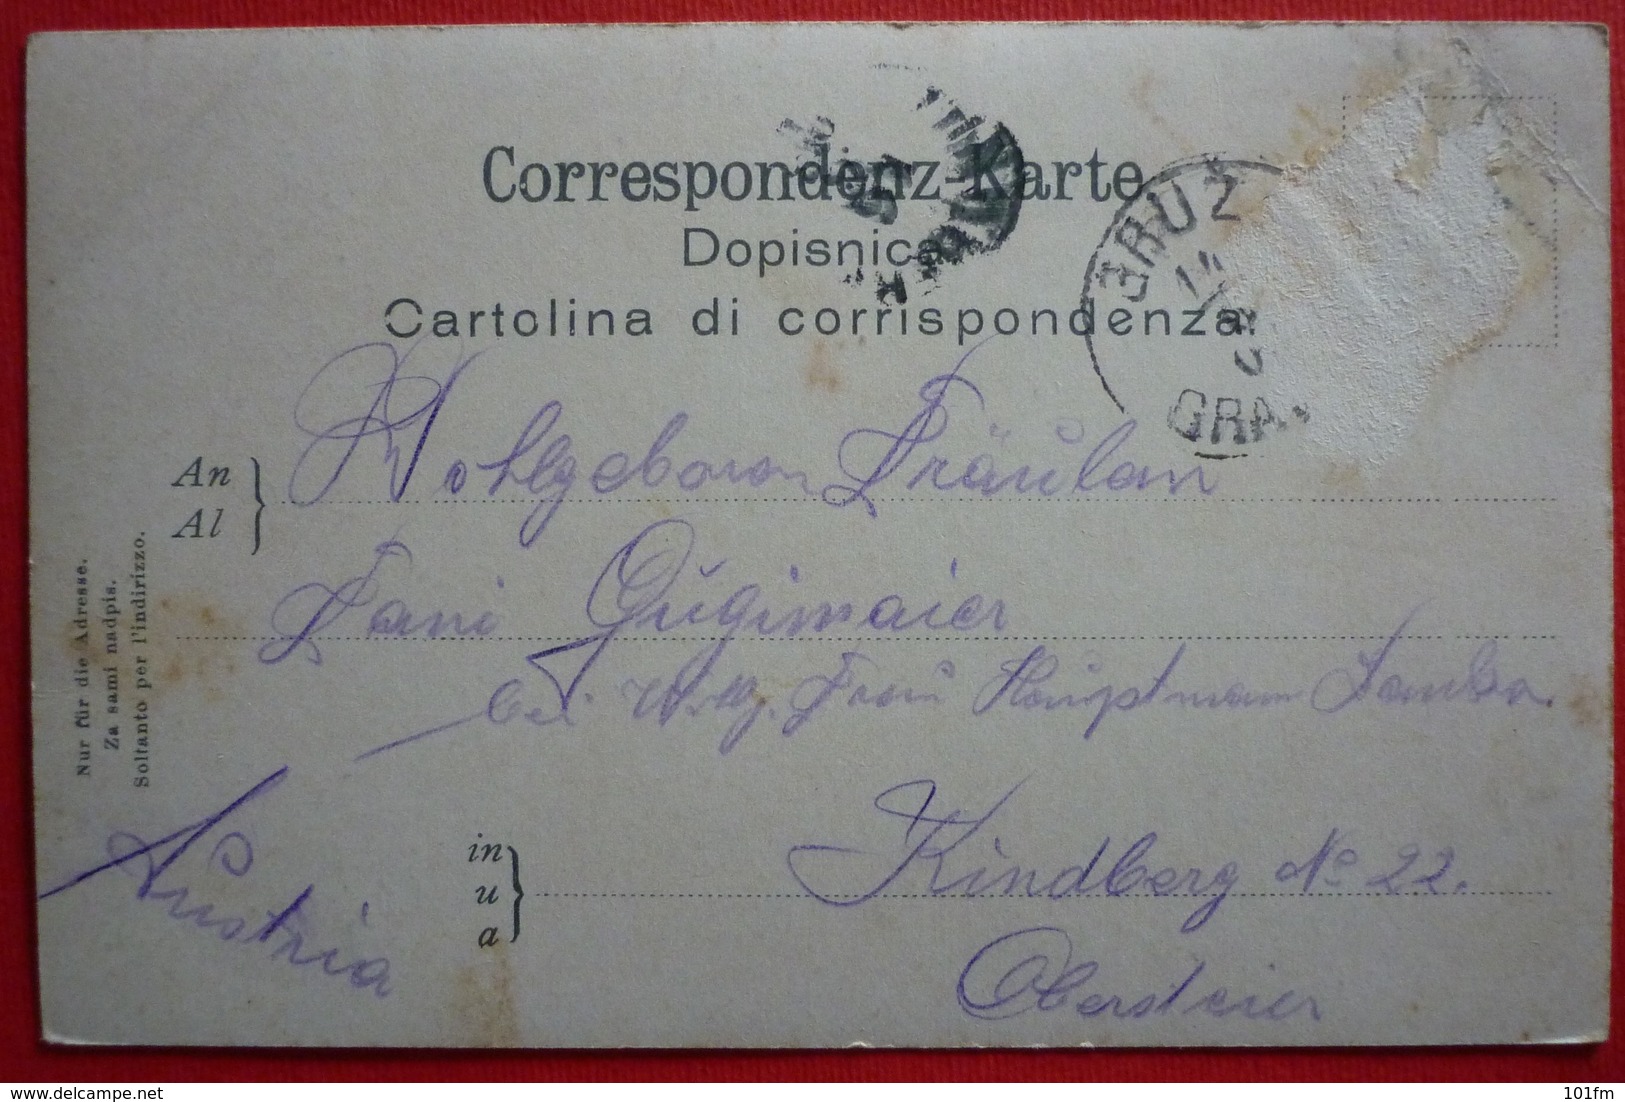 Correspondenz-Karte
Dopisnica
Cartolina di corrispondenza.
GRUŽ
GRA
An
Al
Wohlgeboren Fräulen
Fani Gugimaier
bei Frau Hauptmann
in
u
a
Kindberg No 22.
Obersteier
Austria
Nur für die Adresse.
Za sami nadpis.
Soltanto per l'indirizzo.
101fm